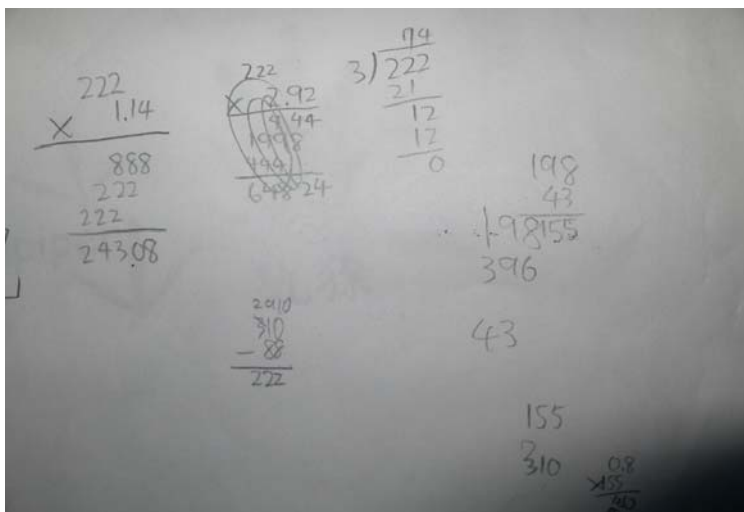 222
× 1.14
888
222
222
243.08
222
× 2.92
444
1998
444
648 24
74
3)222
21
12
12
0
198
43
155
198
396
43
2910
310
- 88
222
155
310
0.8
×155